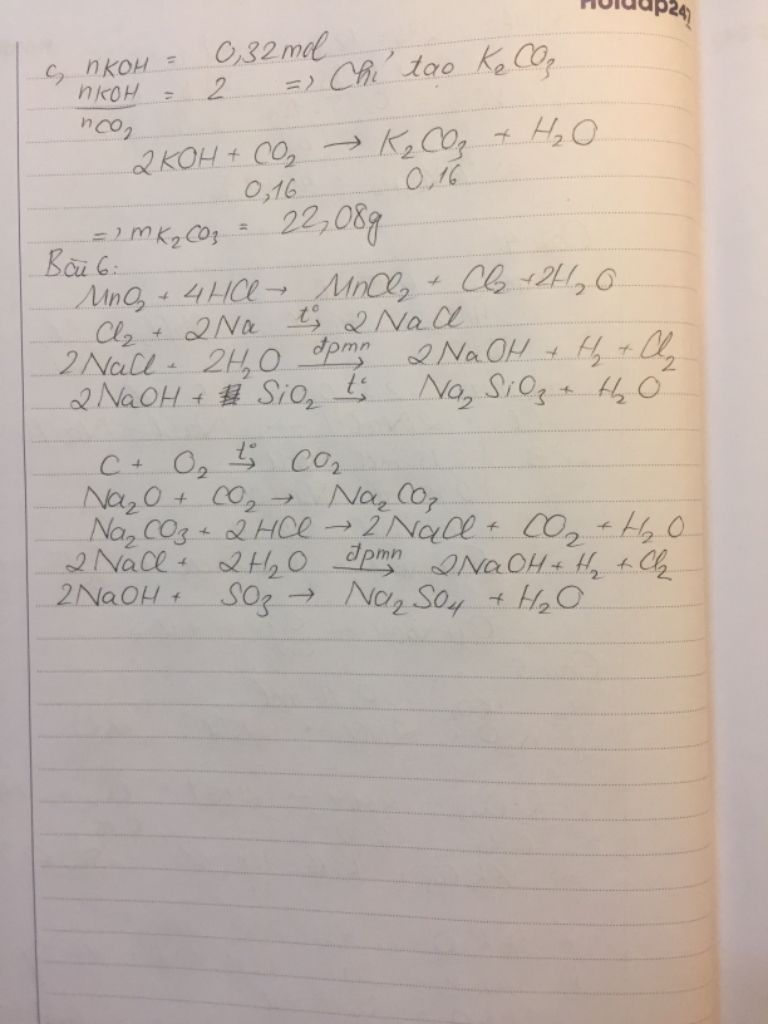 Hoidap247
c, nKOH = 0,32mol
nKOH/nCO2 = 2 => Chỉ tạo K2CO3
2KOH + CO2 → K2CO3 + H2O
0,16 0,16
=> mK2CO3 = 22,08g
Bài 6:
MnO2 + 4HCl → MnCl2 + Cl2 + 2H2O
Cl2 + 2Na t°→ 2NaCl
2NaCl + 2H2O đpmn→ 2NaOH + H2 + Cl2
2NaOH + SiO2 t°→ Na2SiO3 + H2O
C + O2 t°→ CO2
Na2O + CO2 → Na2CO3
Na2CO3 + 2HCl → 2NaCl + CO2 + H2O
2NaCl + 2H2O đpmn→ 2NaOH + H2 + Cl2
2NaOH + SO3 → Na2SO4 + H2O